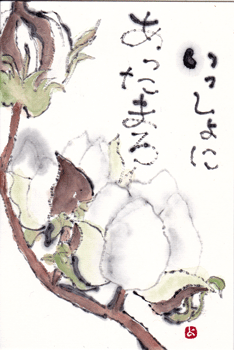 いっしょに
あったまろ